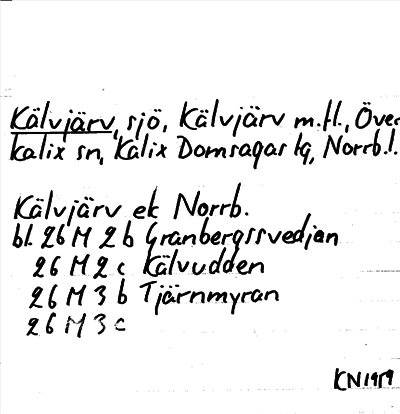 Kälvjärv, sjö, Kälvjärv m.fl., Över-
kalix sn, Kalix Domsagas tg, Norrb.l.
Kälvjärv ek Norrb.
bl. 26 M 2 b Granbergssvedjan
26 M 2 c Kälvudden
26 M 3 b Tjärnmyran
26 M 3 c